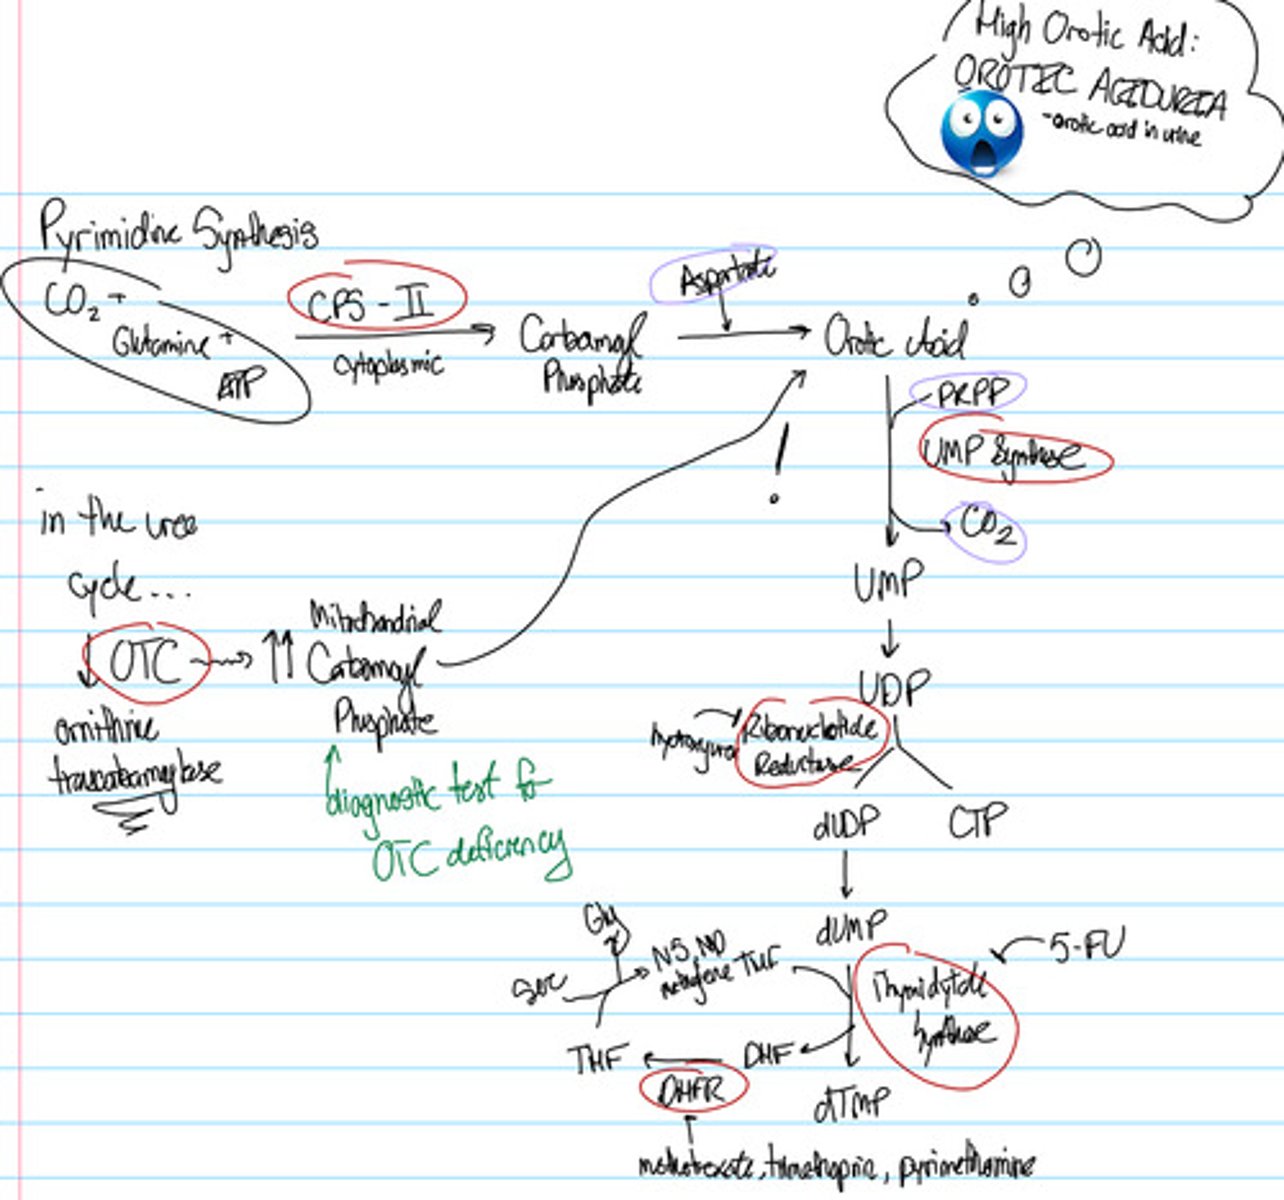 High Orotic Acid:
OROTIC ACIDURIA
-orotic acid in urine
Pyrimidine Synthesis
CO2 +
Glutamine +
ATP
CPS - II
cytoplasmic
Carbamoyl
Phosphate
Aspartate
Orotic Acid
PRPP
UMP Synthase
CO2
!
UMP
in the urea
cycle...
↓ OTC → ↑↑
ornithine
transcarbamylase
Mitochondrial
Carbamoyl
Phosphate
diagnostic test for
OTC deficiency
UDP
hydroxyurea
Ribonucleotide
Reductase
dUDP
CTP
dUMP
Gly
Ser
N5, N10
methylene THF
5-FU
Thymidylate
Synthase
THF
DHF
DHFR
dTMP
methotrexate, trimethoprim, pyrimethamine